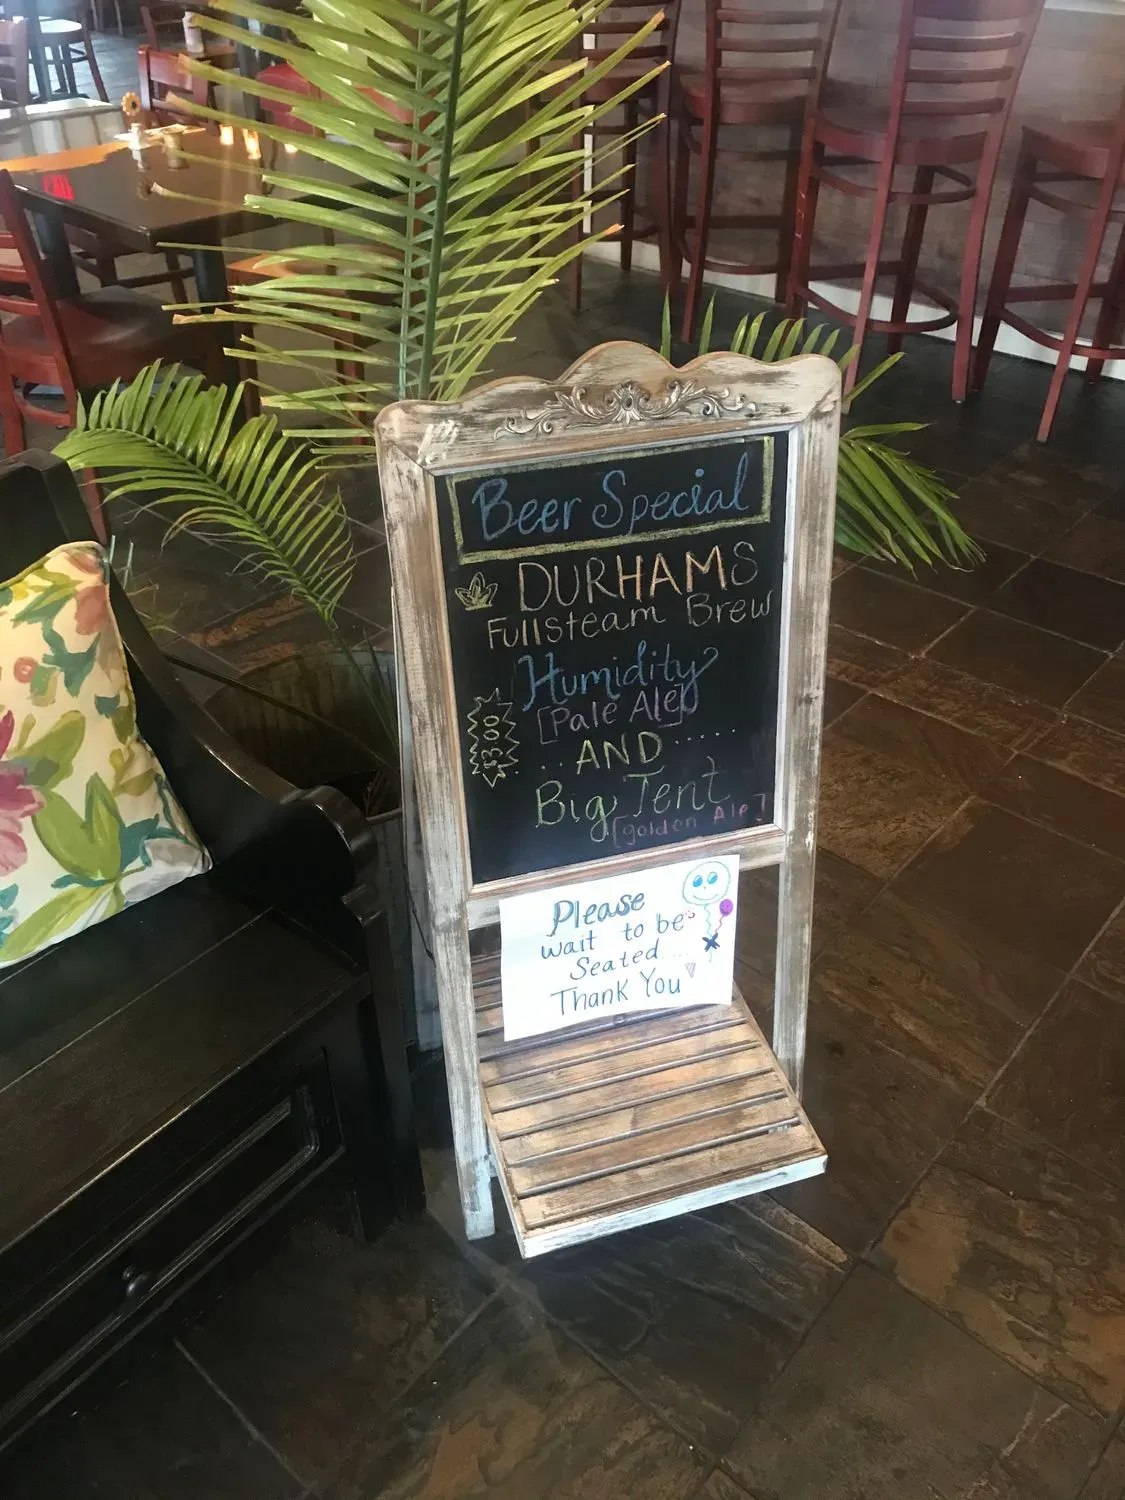 Beer Special
DURHAMS
Fullsteam Brew
Humidity
[Pale Ale]
$3.00
...AND......
Big Tent
[golden Ale]
Please
wait to be
Seated...
Thank You